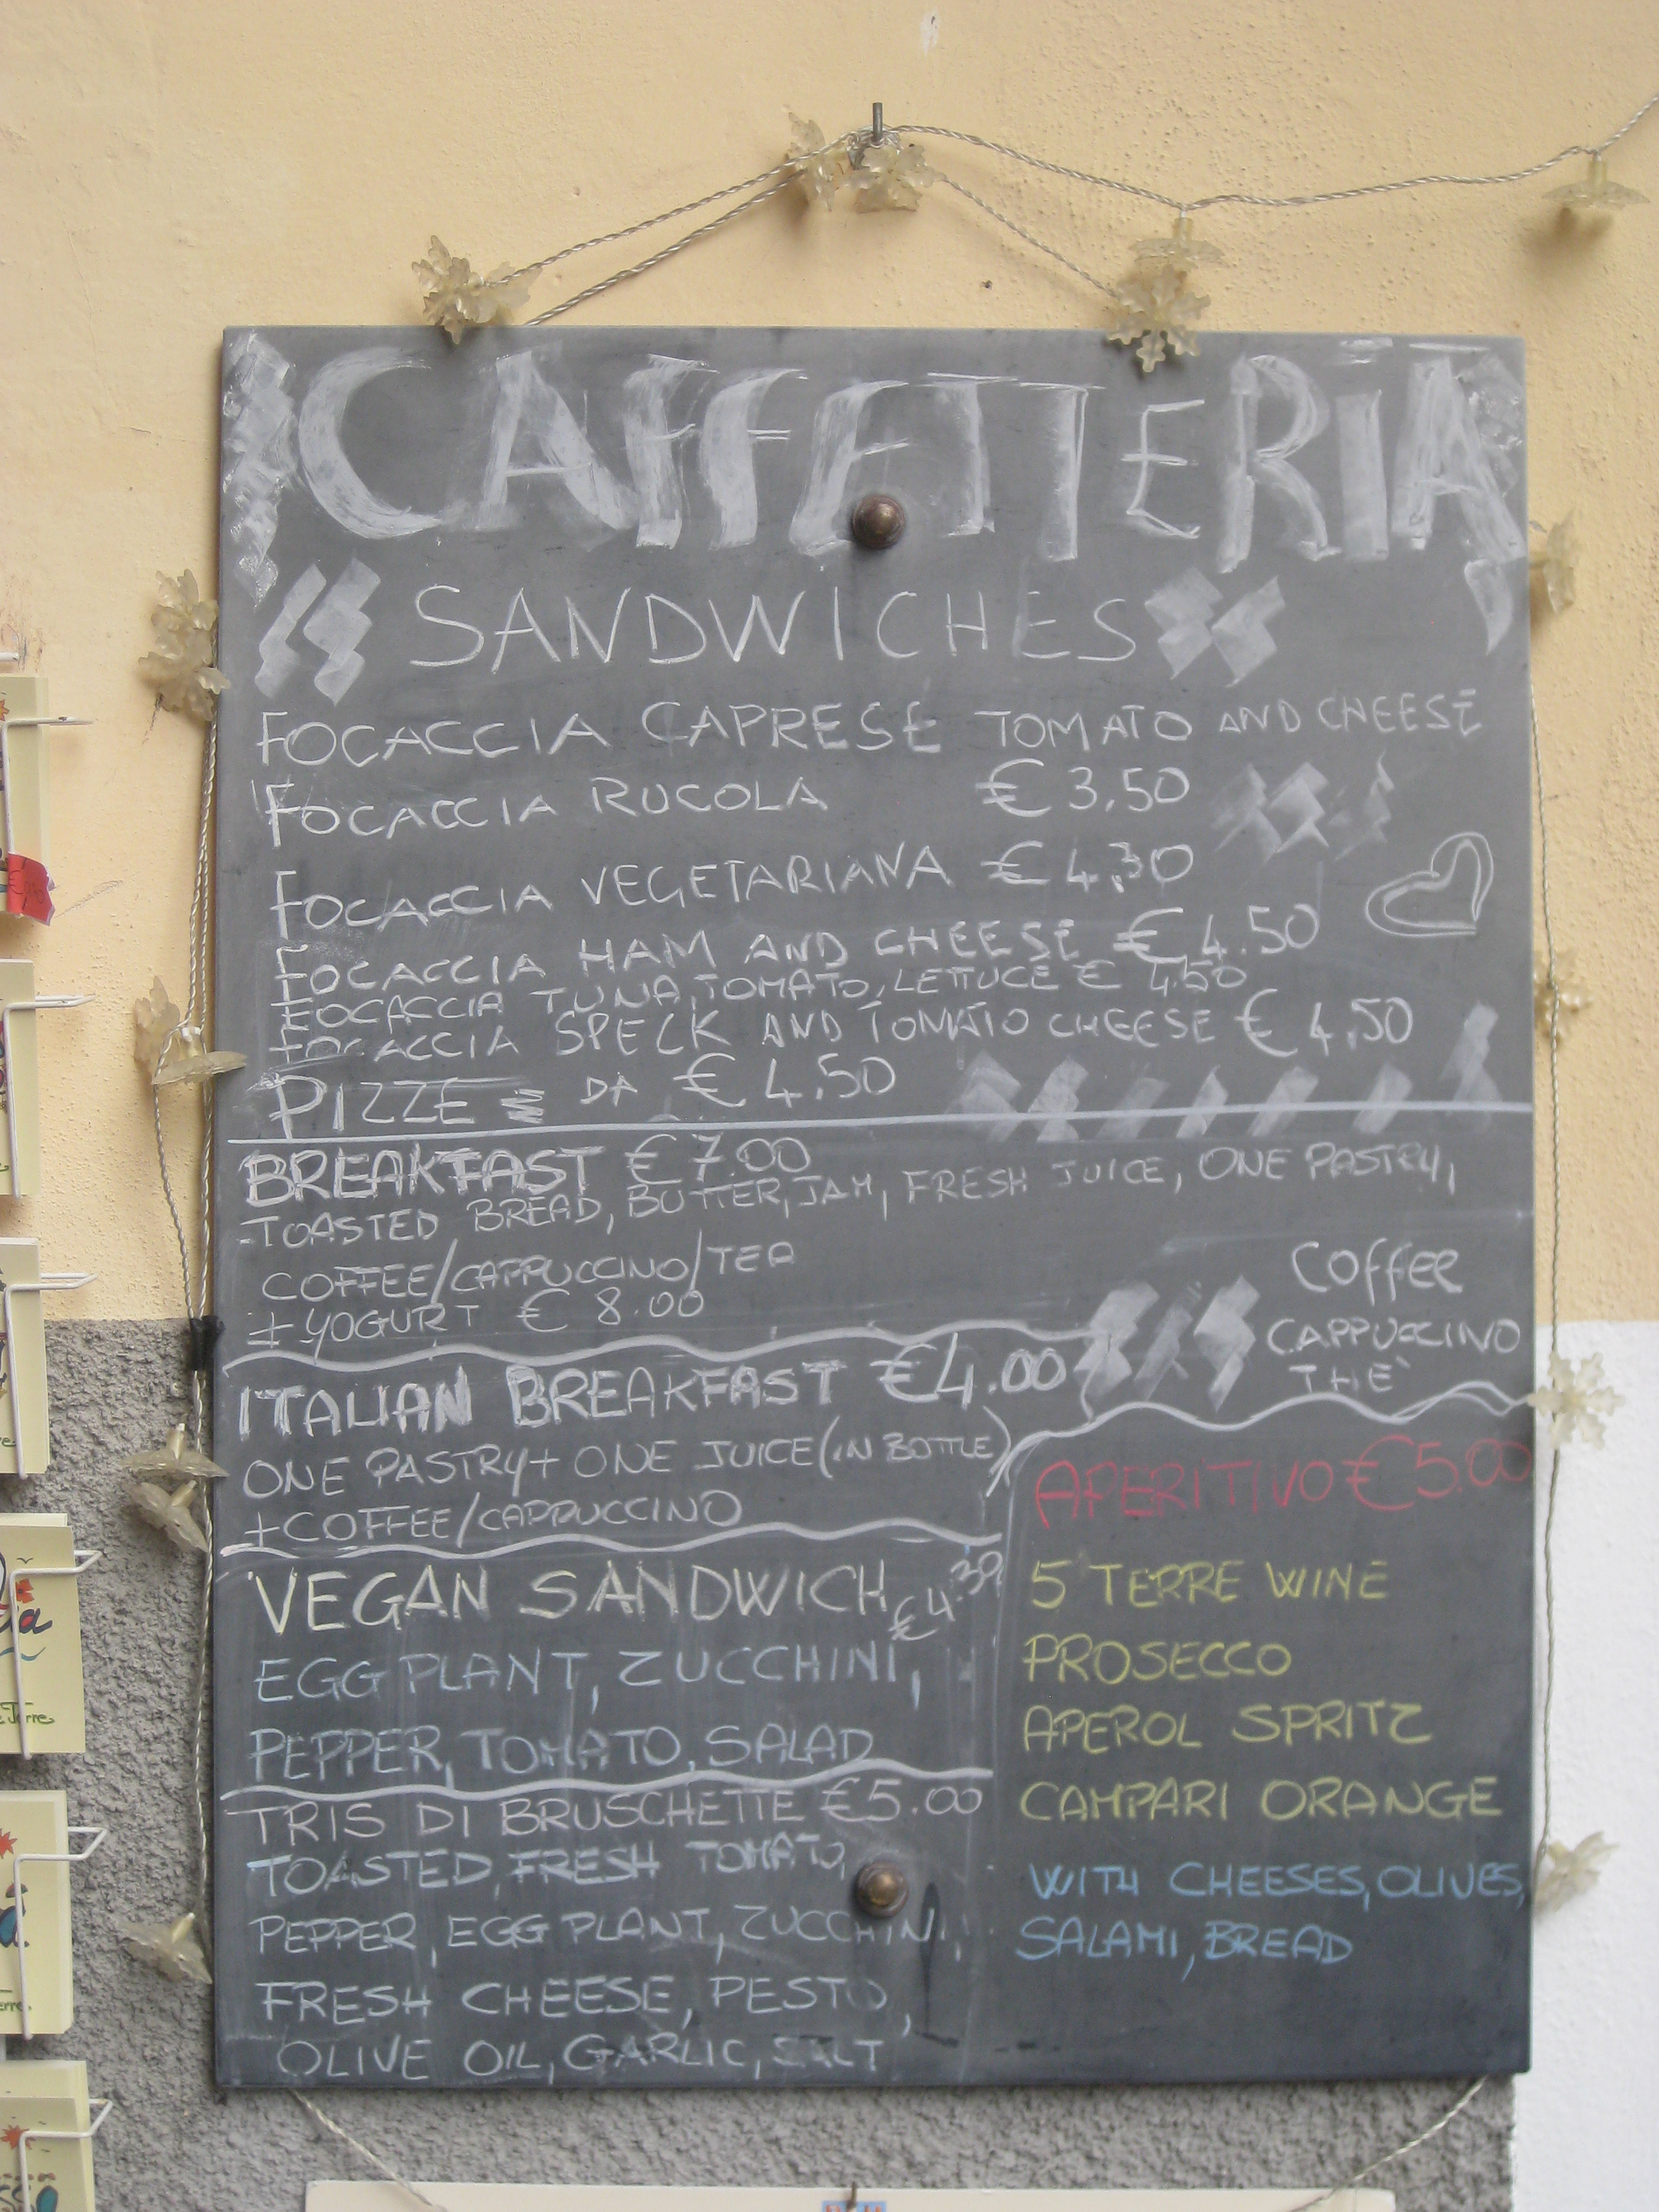 CAFFETTERIA
SANDWICHES
FOCACCIA CAPRESE TOMATO AND CHEESE
FOCACCIA RUCOLA € 3,50
FOCACCIA VEGETARIANA € 4,30
FOCACCIA HAM AND CHEESE € 4.50
FOCACCIA TUNA, TOMATO, LETTUCE € 4.50
FOCACCIA SPECK AND TOMATO CHEESE € 4,50
PIZZE DA € 4,50
BREAKFAST € 7.00
TOASTED BREAD, BUTTER, JAM, FRESH JUICE, ONE PASTRY,
COFFEE/CAPPUCCINO/TEA
+ YOGURT € 8.00
Coffee
CAPPUCCINO
THE'
ITALIAN BREAKFAST €4.00
ONE PASTRY + ONE JUICE (IN BOTTLE)
+COFFEE/CAPPUCCINO
VEGAN SANDWICH €4.30
EGG PLANT, ZUCCHINI,
PEPPER, TOMATO, SALAD
TRIS DI BRUSCHETTE €5.00
TOASTED, FRESH TOMATO,
PEPPER, EGG PLANT, ZUCCHINI,
FRESH CHEESE, PESTO,
OLIVE OIL, GARLIC, SALT
APERITIVO € 5.00
5 TERRE WINE
PROSECCO
APEROL SPRITZ
CAMPARI ORANGE
WITH CHEESES, OLIVES,
SALAMI, BREAD